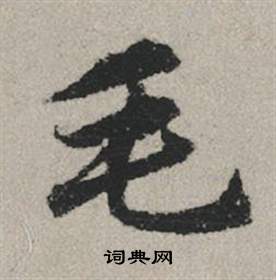 毛
词典网